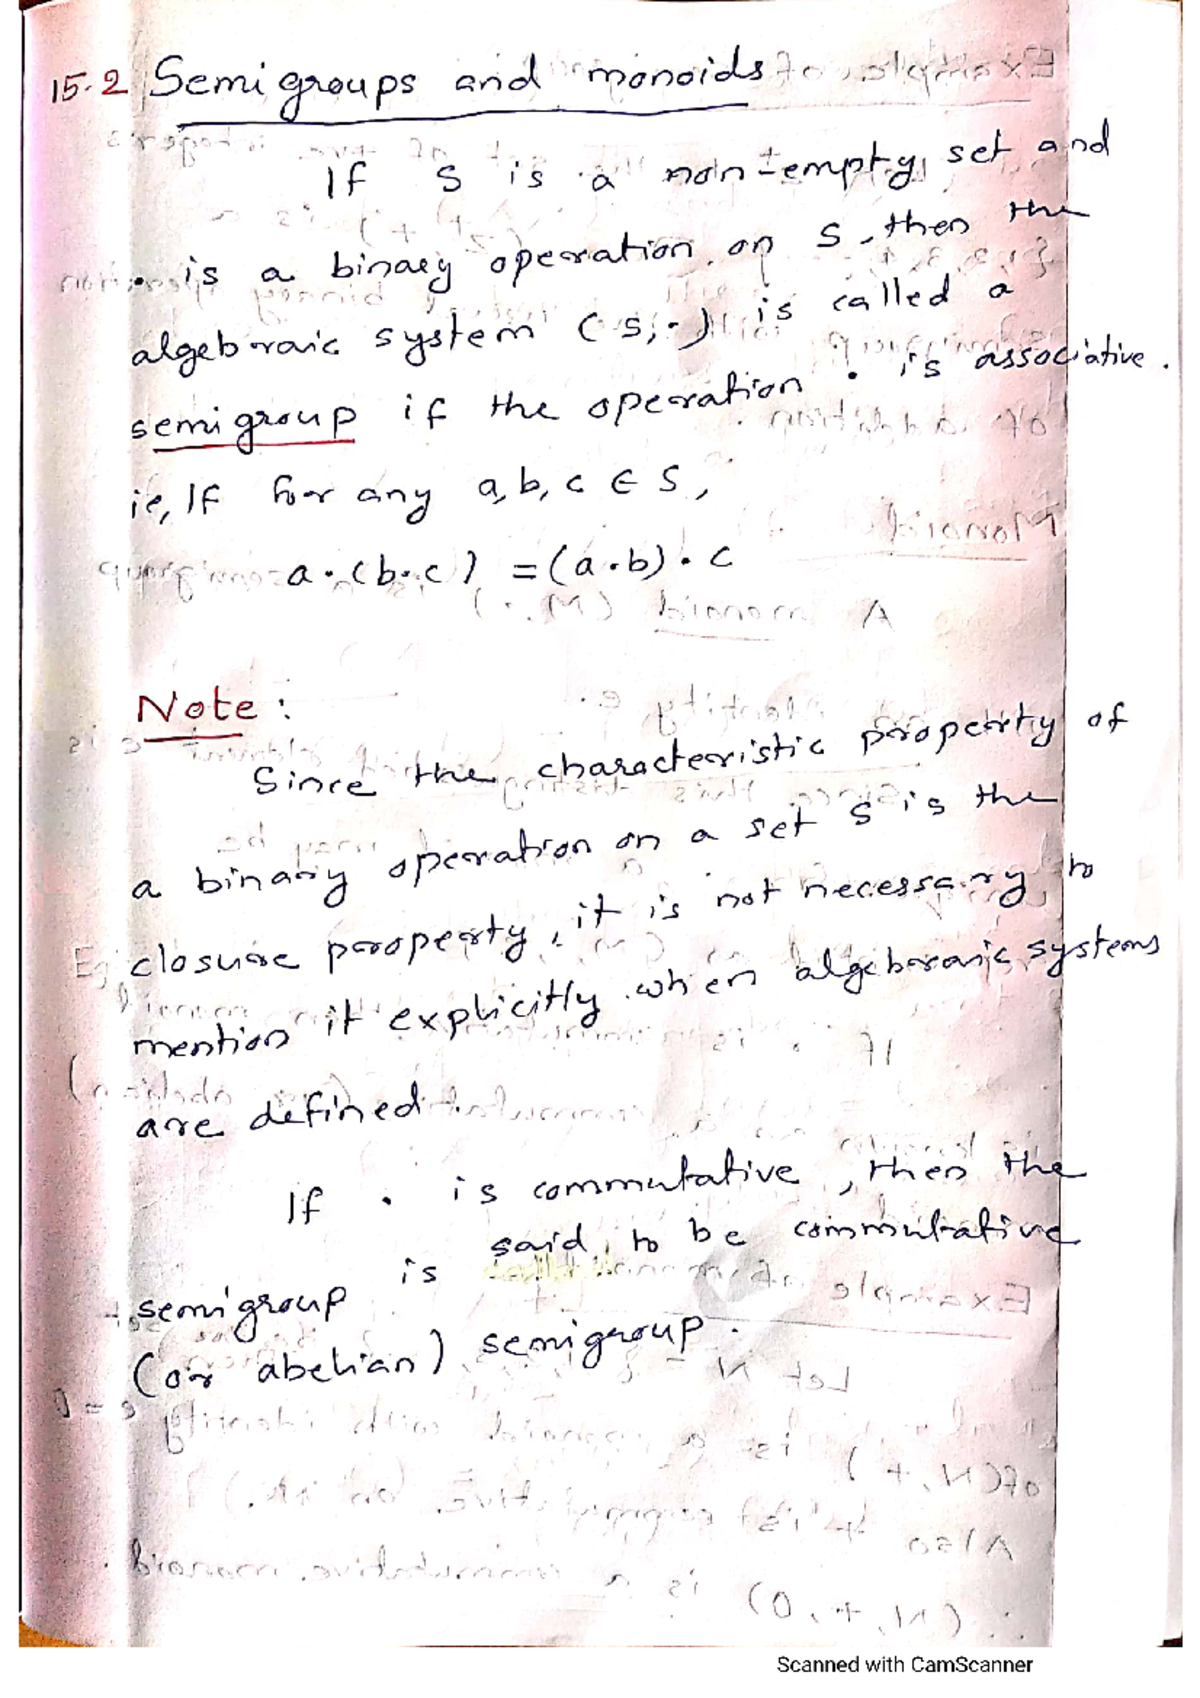 15.2 Semigroups and monoids
If S is a non-empty set and
· is a binary operation on S, then the
algebraic system (S, ·) is called a
semigroup if the operation · is associative.
ie, If for any a, b, c ∈ S,
a · (b · c) = (a · b) · c
Note :
Since the characteristic property of
a binary operation on a set S is the
closure property, it is not necessary to
mention it explicitly when algebraic systems
are defined.
If · is commutative, then the
semigroup is said to be commutative
(or abelian) semigroup.
Scanned with CamScanner